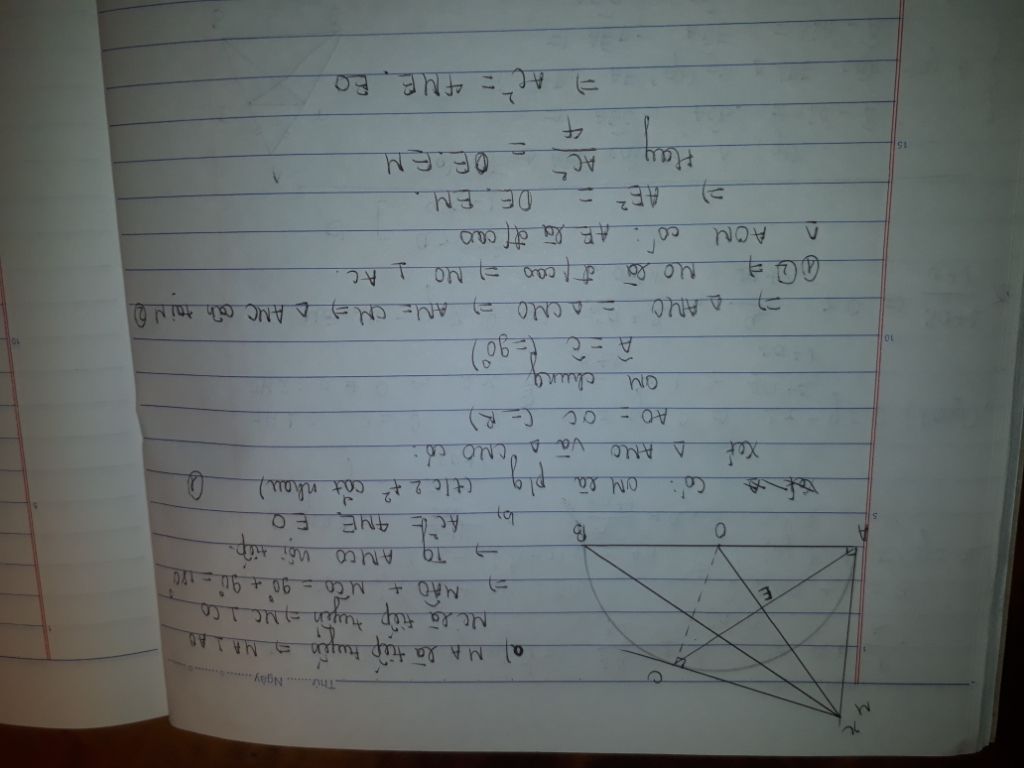 Thứ Ngày
a) MA là tiếp tuyến ⇒ MA ⊥ AO
MC là tiếp tuyến ⇒ MC ⊥ CO
⇒ MÂO + MĈO = 90° + 90° = 180°
⇒ TG AMCO nội tiếp.
b, AC² = 4ME. EO
Có: OM là p/g (t/c 2 t² cắt nhau) ①
Xét Δ AMO và Δ CMO có:
AO = OC (= R)
OM chung
Â = Ĉ (= 90°)
⇒ Δ AMO = Δ CMO ⇒ AM = CM ⇒ Δ AMC cân tại M ②
①② ⇒ MO là đ/cao ⇒ MO ⊥ AC.
Δ AOM có: AE là đ/cao
⇒ AE² = OE. EM.
Hay AC²/4 = OE. EM
⇒ AC² = 4ME. EO
x
M
C
E
A
O
B
5
10
15
5
10